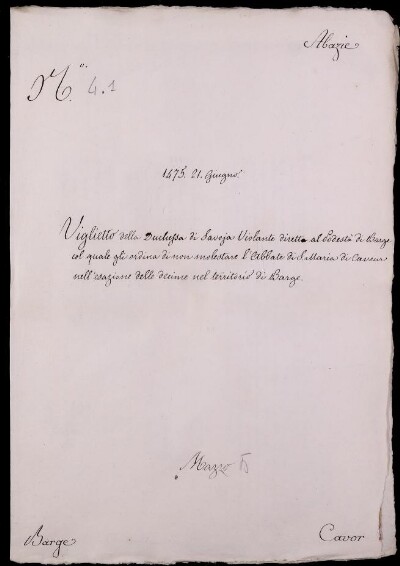 Abazie
N.º 4.1
1475. 21. Giugno.
Viglietto della Duchessa di Savoja Violante diretto al Podestà di Barge
col quale gli ordina di non molestare l'Abbate di S. Maria di Cavour
nell'esazione delle decime nel territorio di Barge.
Mazzo
Barge
Cavor